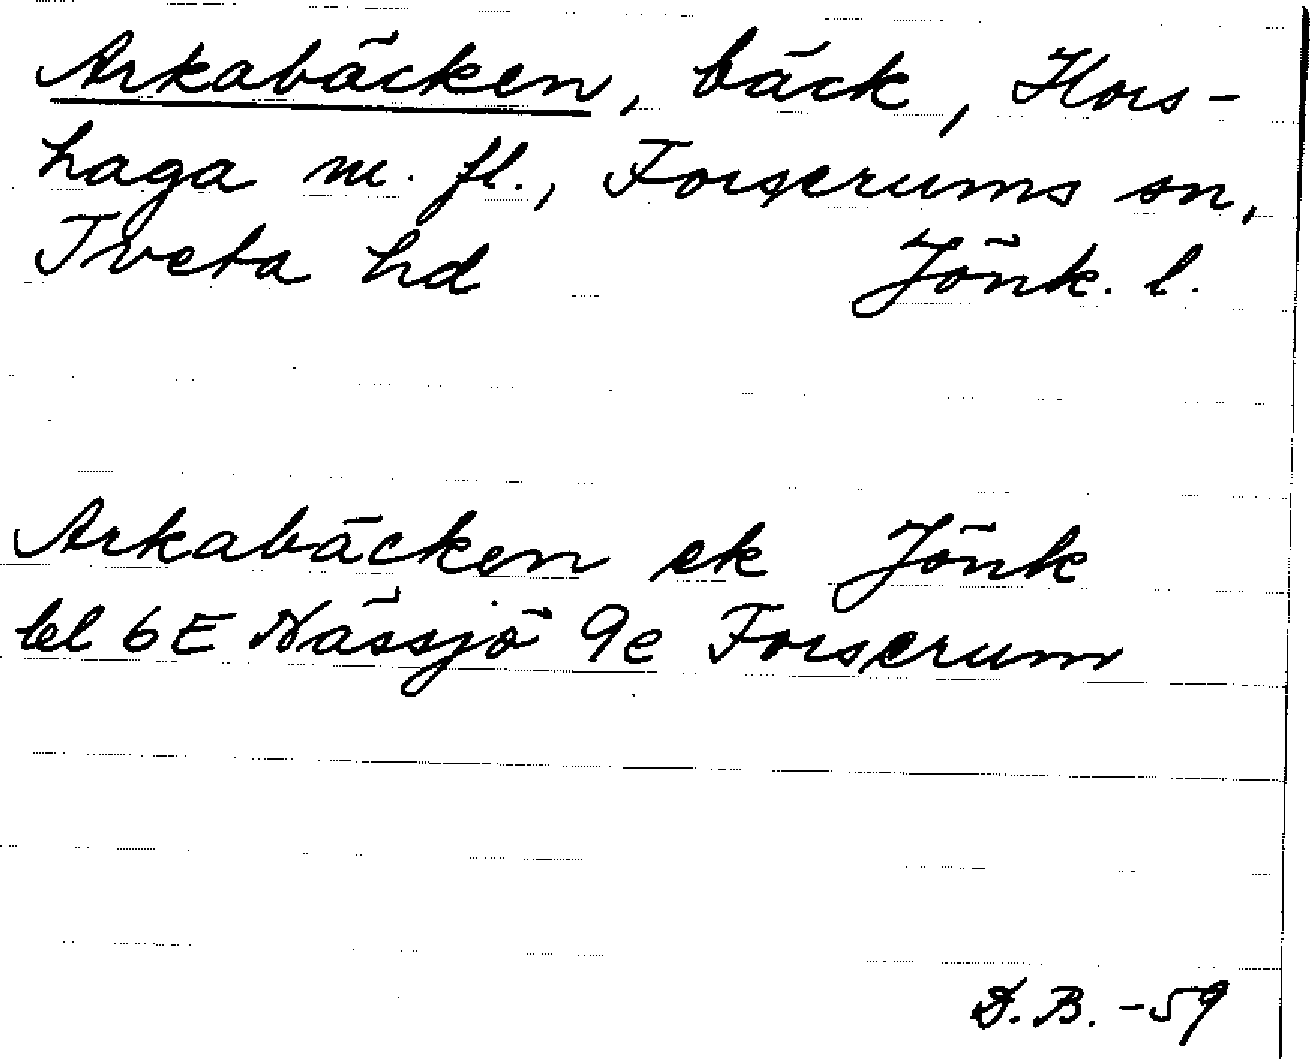 Arkabäcken, bäck, Hors-
haga m. fl., Forserums sn,
Tveta hd Jönk. l.
Arkabäcken ek Jönk
bl 6E Nässjö 9e Forserum
D.B. -59